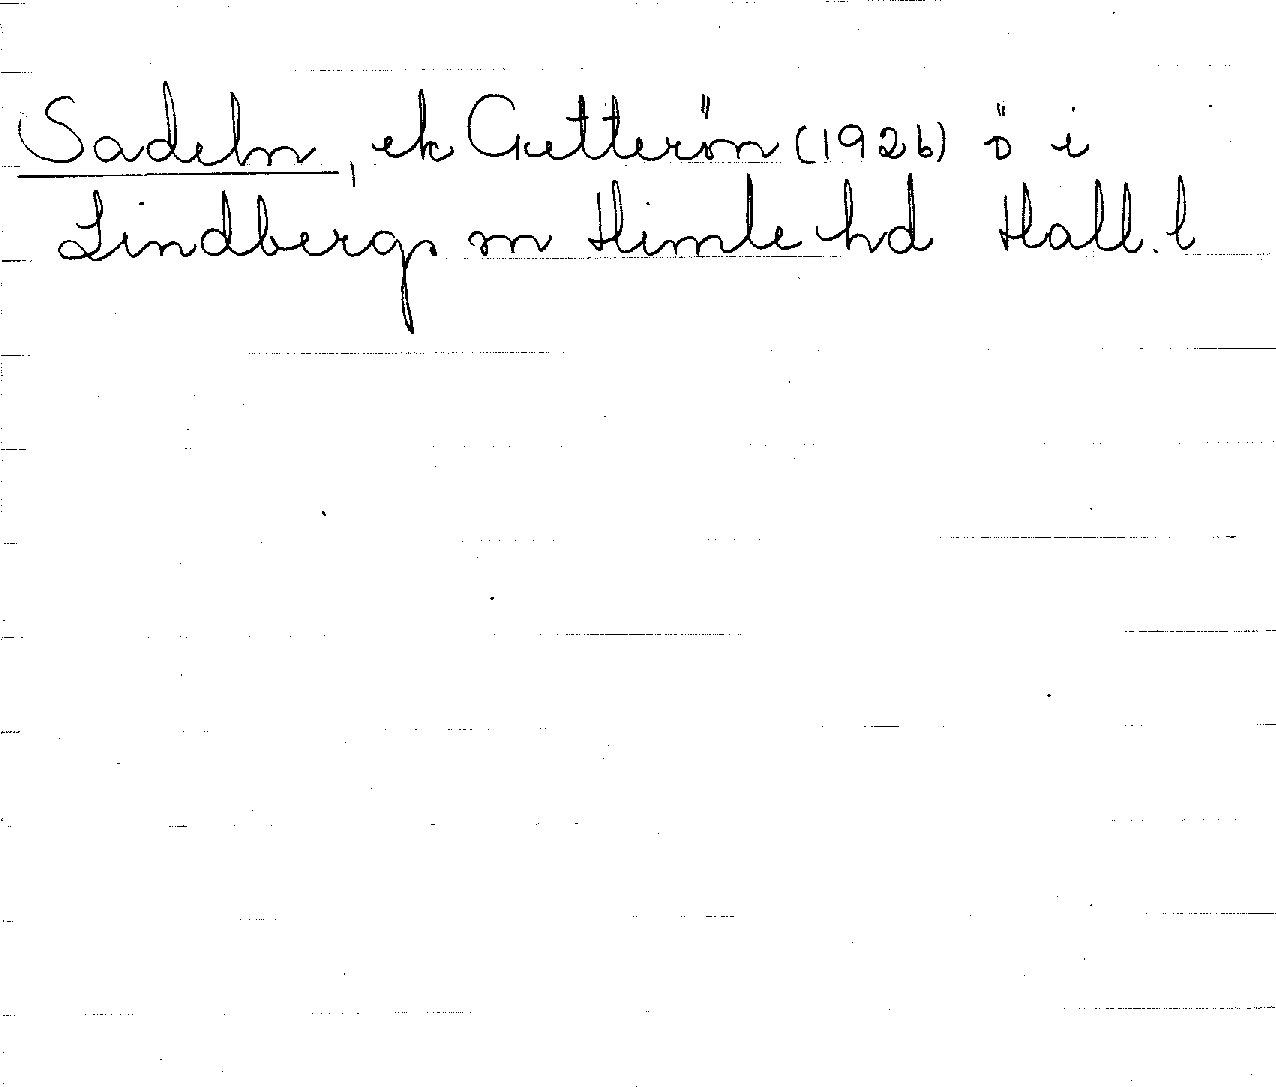 Sadeln, ek Getterön (1926) ö i
Lindbergs sn Himle hd Hall. l